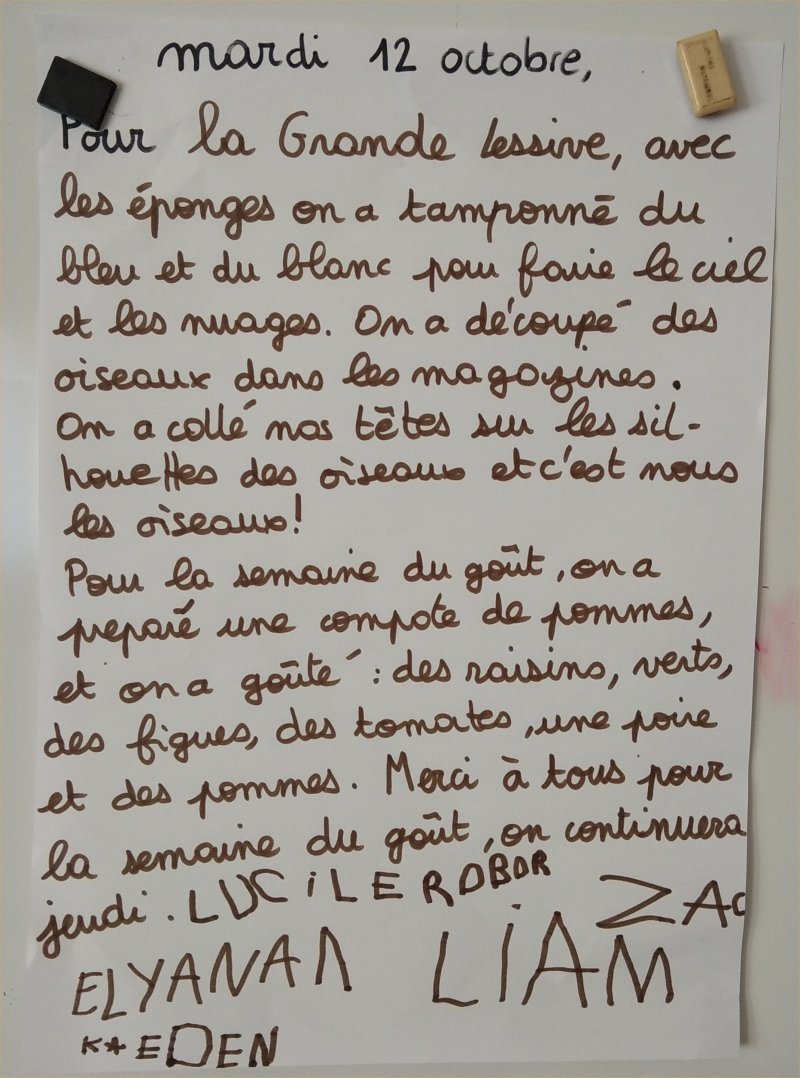 mardi 12 octobre,
Pour la Grande lessive, avec
les éponges on a tamponné du
bleu et du blanc pour faire le ciel
et les nuages. On a découpé des
oiseaux dans les magazines.
On a collé nos têtes sur les sil-
houettes des oiseaux et c'est nous
les oiseaux!
Pour la semaine du goût, on a
preparé une compote de pommes,
et on a goûté : des raisins, verts,
des figues, des tomates, une poire
et des pommes. Merci à tous pour
la semaine du goût, on continuera
jeudi. LUCiLE ROBOR
ZAC
ELYANA LiAM
EDEN